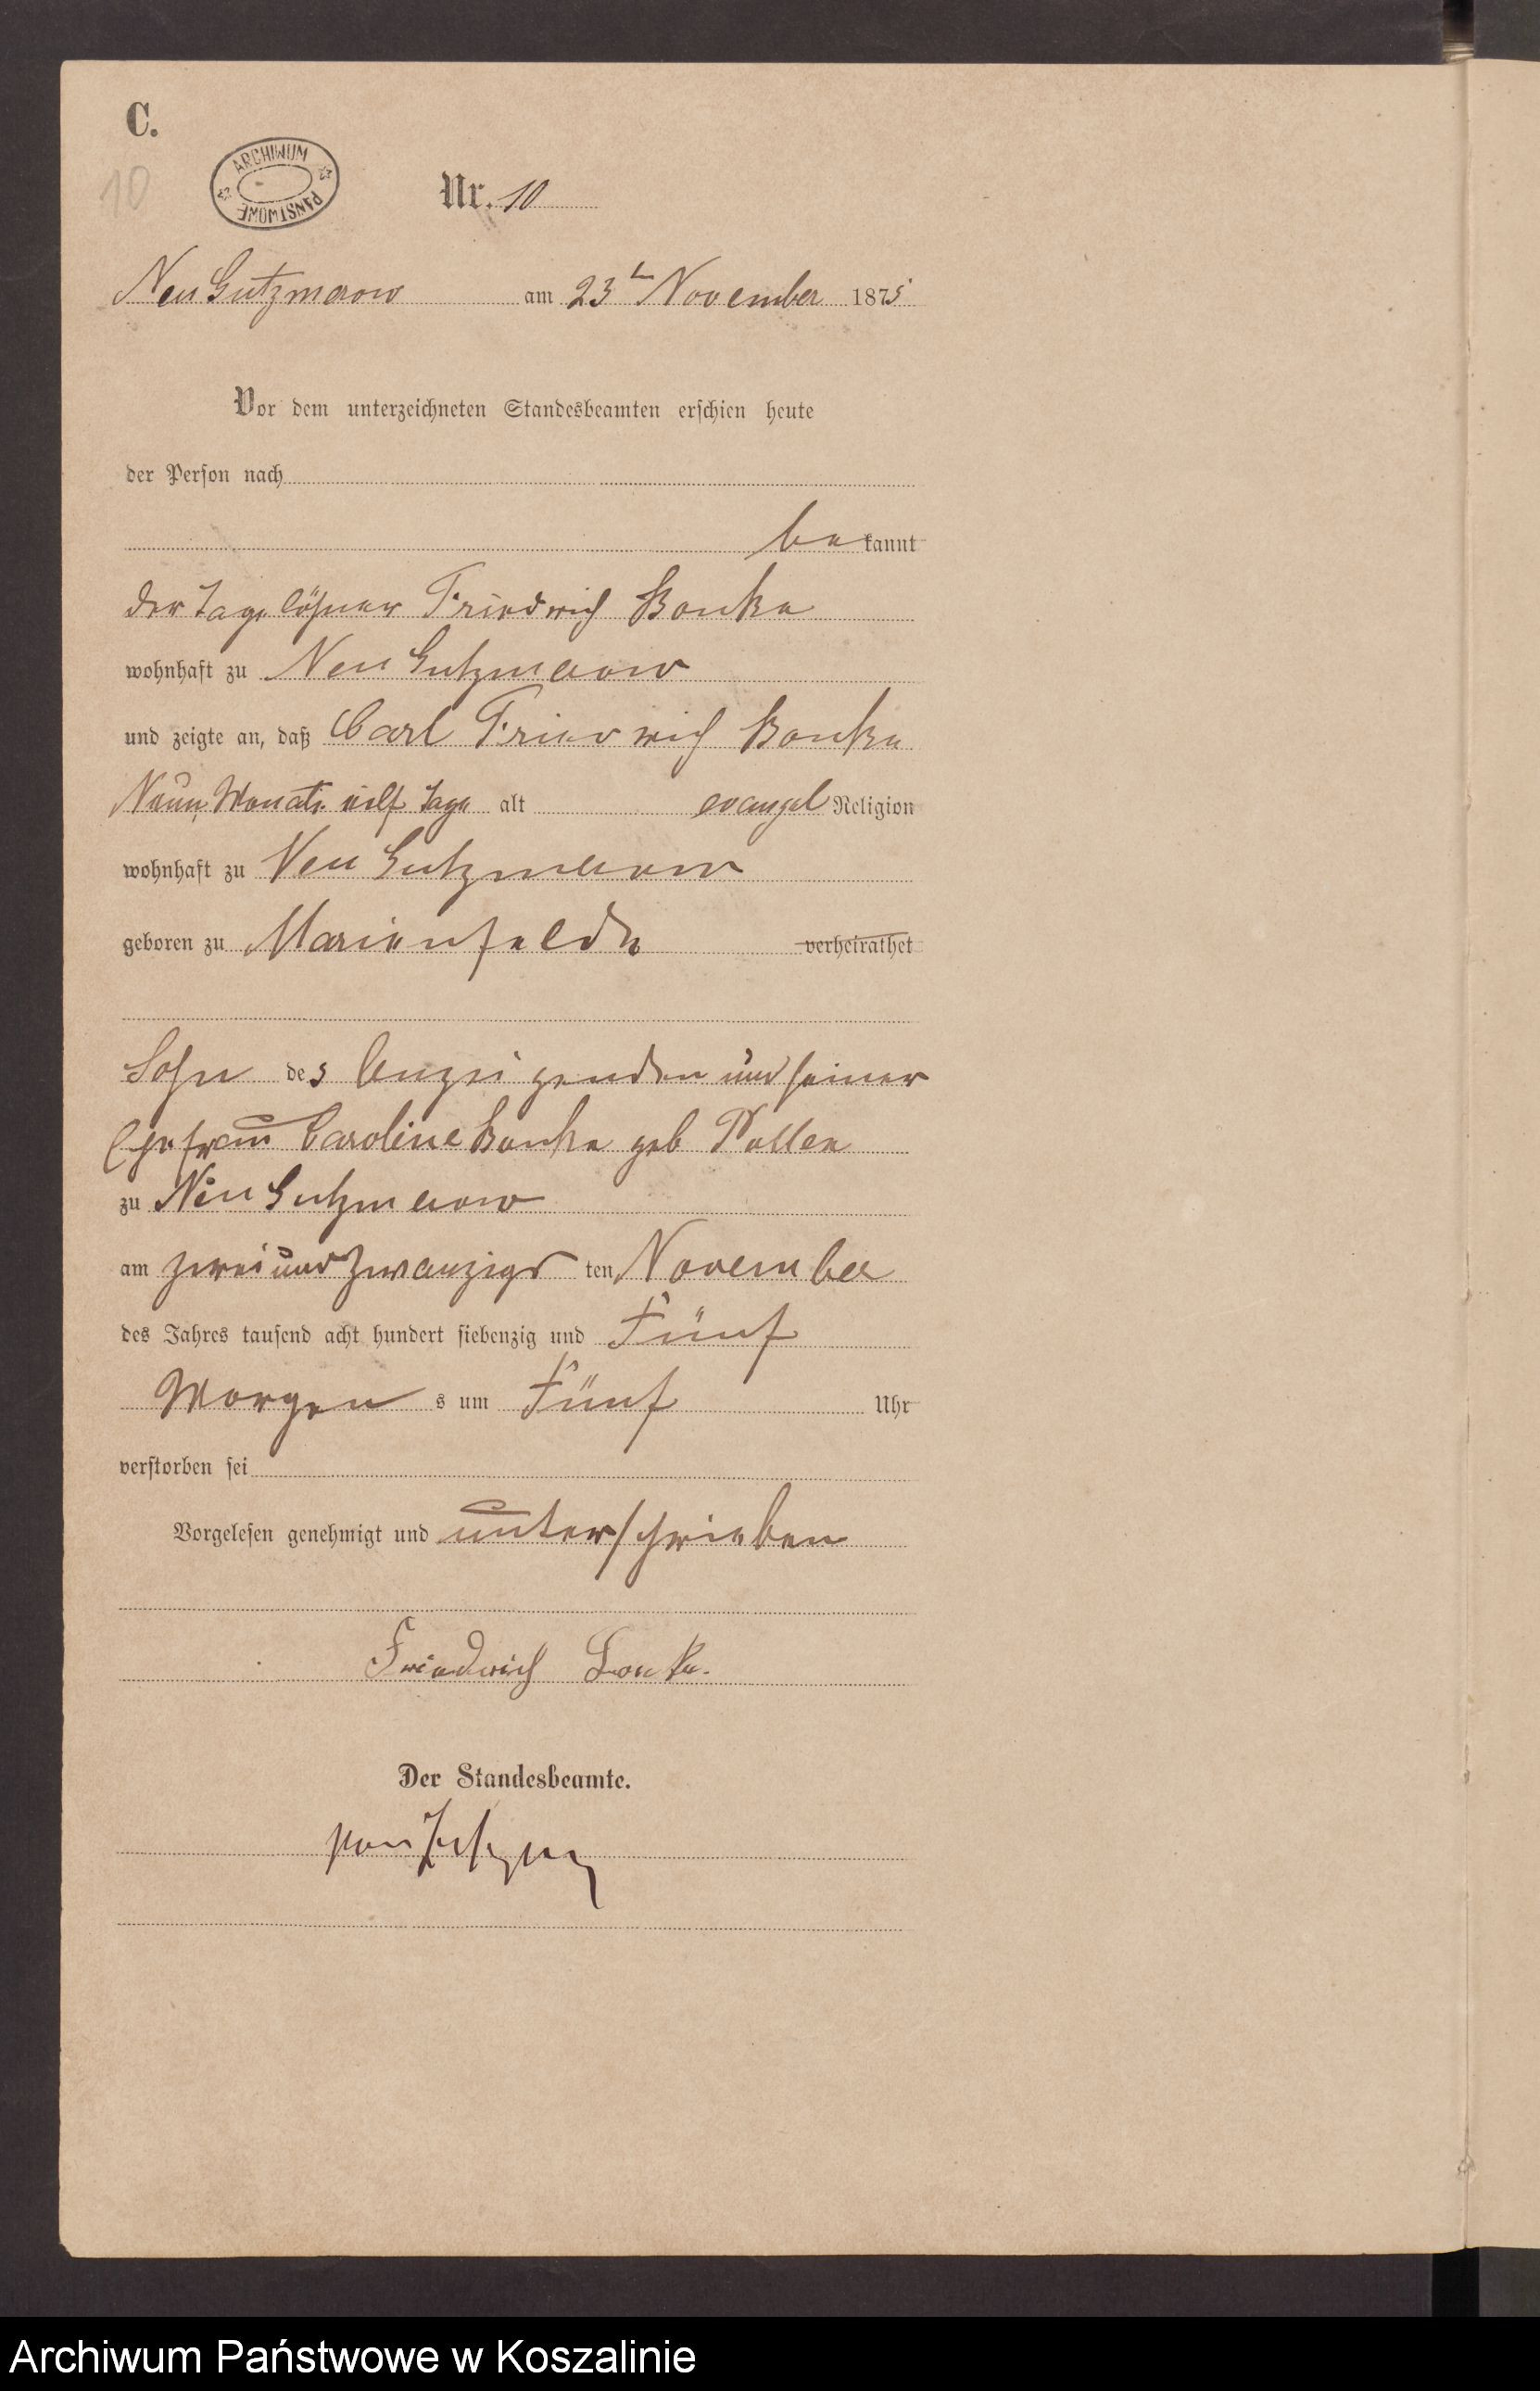 C.
10
ARCHIWUM PAŃSTWOWE
Nr. 10
Neu Gutzmerow am 23ten November 1875
Vor dem unterzeichneten Standesbeamten erschien heute
der Person nach
bekannt
der Tagelöhner Friedrich Bonke
wohnhaft zu Neu Gutzmerow
und zeigte an, daß Carl Friedrich Bonke
Neun Monate eilf Tage alt evangel Religion
wohnhaft zu Neu Gutzmerow
geboren zu Marienfelde verheirathet
Sohn des Anzeigenden und seiner
Ehefrau Caroline Bonke geb
zu Neu Gutzmerow
am zwei und zwanzigsten November
des Jahres tausend acht hundert siebenzig und Fünf
Morgens um Fünf Uhr
verstorben sei
Vorgelesen genehmigt und unterschrieben
Friedrich Bonke.
Der Standesbeamte.
von
Archiwum Państwowe w Koszalinie